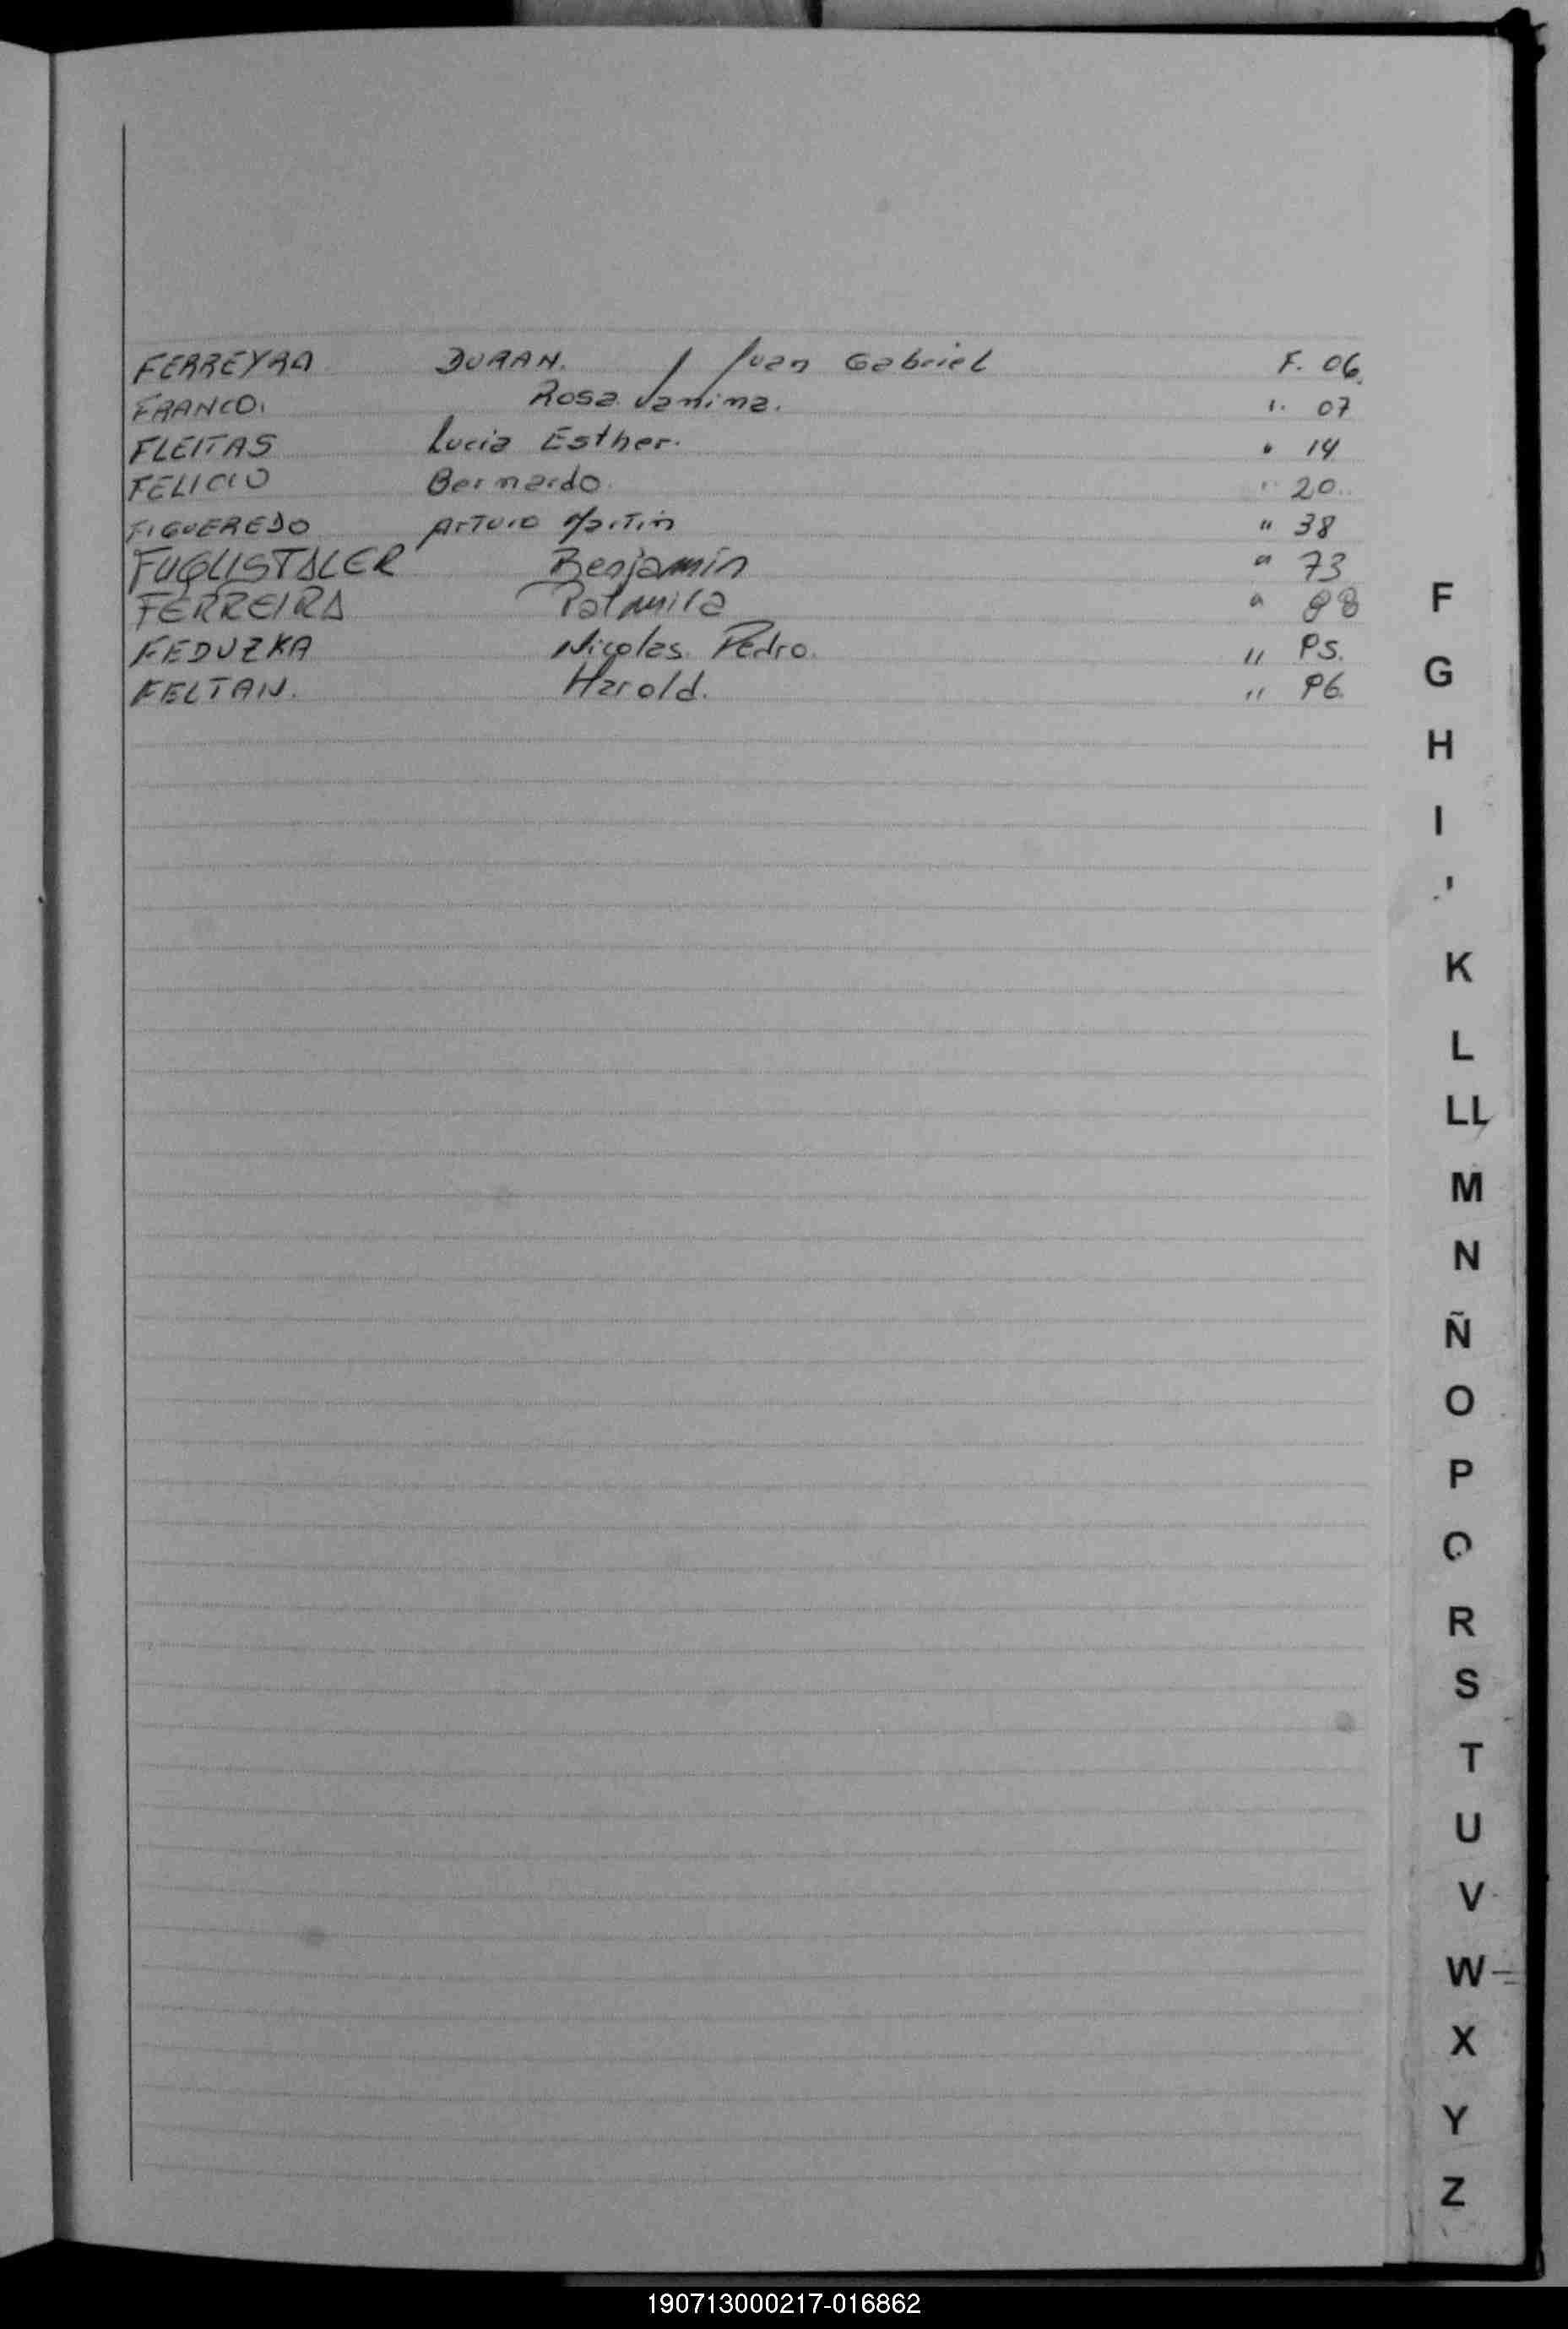 FERREYRA DURAN. / Juan Gabriel F. 06.
FRANCO. Rosa Janina. " 07
FLEITAS Lucia Esther. " 14
FELICIO Bernardo. " 20.
FIGUEREDO Arturo Martin " 38
FUGLISTALER Benjamin " 73
FERREIRA Palmira " 88
FEDUZKA Nicolas Pedro. " 95.
FELTAN. Harold. " 96.
F
G
H
I
K
L
LL
M
N
Ñ
O
P
Q
R
S
T
U
V
W
X
Y
Z
190713000217-016862